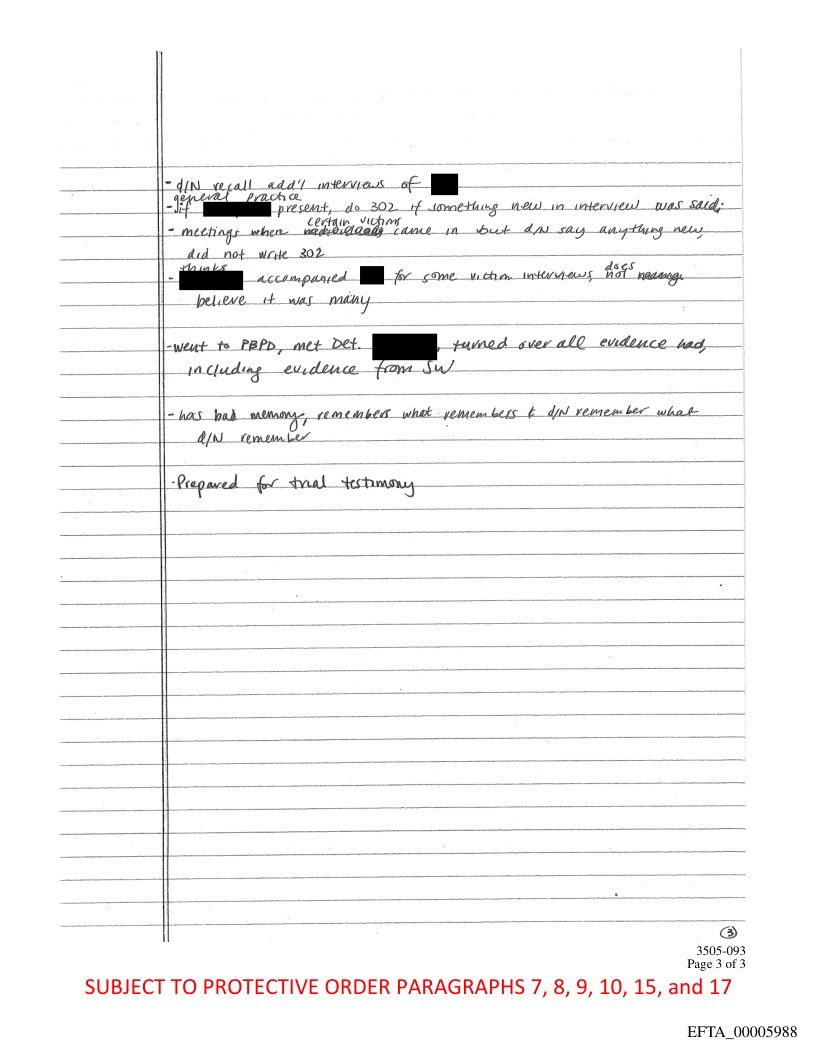 - d/N recall add'l interviews of
general practice
- if present, do 302 if something new in interview was said;
certain victims
- meetings when came in but d/N say anything new,
did not write 302
thinks
- accompanied for some victim interviews, does not
believe it was many
- went to PBPD, met Det. , turned over all evidence had,
including evidence from SW
- has bad memory, remembers what remembers & d/N remember what
d/N remember
- Prepared for trial testimony
3
3505-093
Page 3 of 3
SUBJECT TO PROTECTIVE ORDER PARAGRAPHS 7, 8, 9, 10, 15, and 17
EFTA_00005988